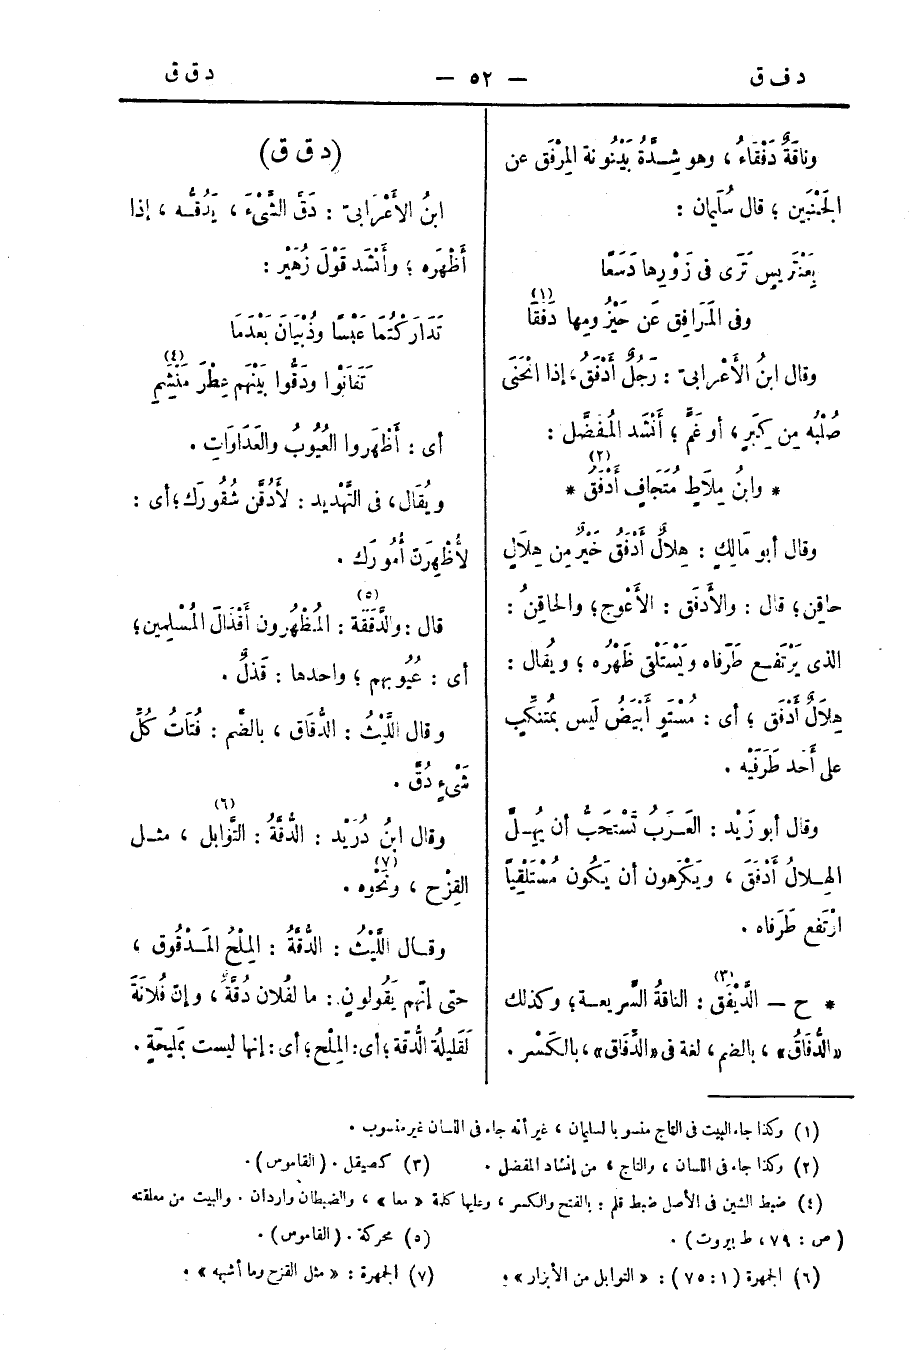 د ف ق — ٥٢ — د ق ق
وناقَةٌ دَفْقَاءُ ، وهو شِدَّةُ بَيْنُونة المِرْفَق عن
الجَنْبَين ؛ قال سُلَيمان :
بِعَنْتَرِيسٍ تَرَى فى زَوْرِها دَسَعًا
وفى المَرَافِق عَن حَيْزُومِها دَفَقًا (١)
وقال ابنُ الأَعْرابىّ : رَجُلٌ أَدْفَقُ، إذا انْحَنَى
صُلْبُه مِن كِبَرٍ، أو غَمٍّ ؛ أَنْشَد المُفضَّل :
* وابنُ مِلَاطٍ مُتَجافٍ أَدْفَقُ * (٢)
وقال أبو مَالِكٍ : هِلالٌ أَدْفَقُ خَيْرٌ مِن هِلَالٍ
حاقِنٍ؛ قال : والأَدفَق : الأَعْوج؛ والحاقِنُ :
الذى يَرْتَفـع طَرَفاه ويَسْتَلْقِى ظَهْرُه ؛ ويُقال :
هِلَالٌ أَدْفَق ؛ أى : مُسْتَوٍ أَبْيَضُ لَيس بمُتَنكِّبٍ
على أَحَد طَرَفَيْه .
وقال أبو زَيْد : العَـرَبُ تَسْتَحبُّ أن يُهِـلَّ
الهِـلالُ أَدْفَقَ ، ويَكْرَهون أن يَكُون مُسْتَلْقِيًا
ارْتَفع طَرَفاه .
* ح — الدَّيْفَق : الناقةُ السَّريعـة؛ وكذلك (٣)
«الدُّفَاقُ» ، بالضم، لغة فى «الدِّفَاق»، بالكَسْر .
(د ق ق)
ابنُ الأَعْرَابىّ : دَقَّ الشَّىْءَ ، يَدُقُّـه ، إذا
أظْهَره ؛ وأَنْشَد قَوْلَ زُهَيْر :
تَدَارَكْتُمَا عَبْسًا وذُبْيَانَ بَعْدَمَا
تَفَانَوْا ودَقُّوا بَيْنَهم عِطْرَ مَنْشِمِ (٤)
أى : أَظْهَروا العُيُوبُ والعَدَاوَاتِ .
ويُقَال، فى التَّهْدِيد : لَأَدُقَّن شُقُورَك؛ أى :
لأُظْهِرَنّ أُمُورَك .
قال : والدَّقَقَة : المُظْهِرون أَقْذَالَ المُسْلِمين؛ (٥)
أى : عُيُوبهم ؛ واحدها : قَذَلٌ .
وقال اللَّيْثُ : الدُّقَاق ، بالضَّم : فُتَاتُ كُلِّ
شَىْءٍ دُقَّ .
وقال ابنُ دُرَيْد : الدُّقَّةُ : التَّوابل ، مثـل (٦)
القِزْح ، ونَحْوه . (٧)
وقـال اللَّيْثُ : الدُّقَّةُ : المِلْحُ المَـدْقُوق ،
حتى إنّهم يَقُولون : ما لفُلان دُقَّةٌ ، وإنّ فُلانَةَ
لَقَليلةُ الدُّقّة ؛ أى: المِلْح؛ أى: إنها ليست بمَلِيحَةٍ .
(١) وكذا جاء البيت فى التاج منسوبا لسليمان ، غير أنه جاء فى اللسان غير منسوب .
(٢) وكذا جاء فى اللسان ، والتاج ، من إنشاد المفضل . (٣) كصيقل . (القاموس) .
(٤) ضبط الشين فى الأصل ضبط قلم : بالفتح والكسر ، وعليها كلمة « معا » ، والضبطان واردان . والبيت من معلقته
( ص : ٧٩ ، ط بيروت ) . (٥) محركة . (القاموس) .
(٦) الجمهرة ( ١ : ٧٥ ) : « التوابل من الأبزار » . (٧) الجمهرة : « مثل القزح وما أشبهه » .